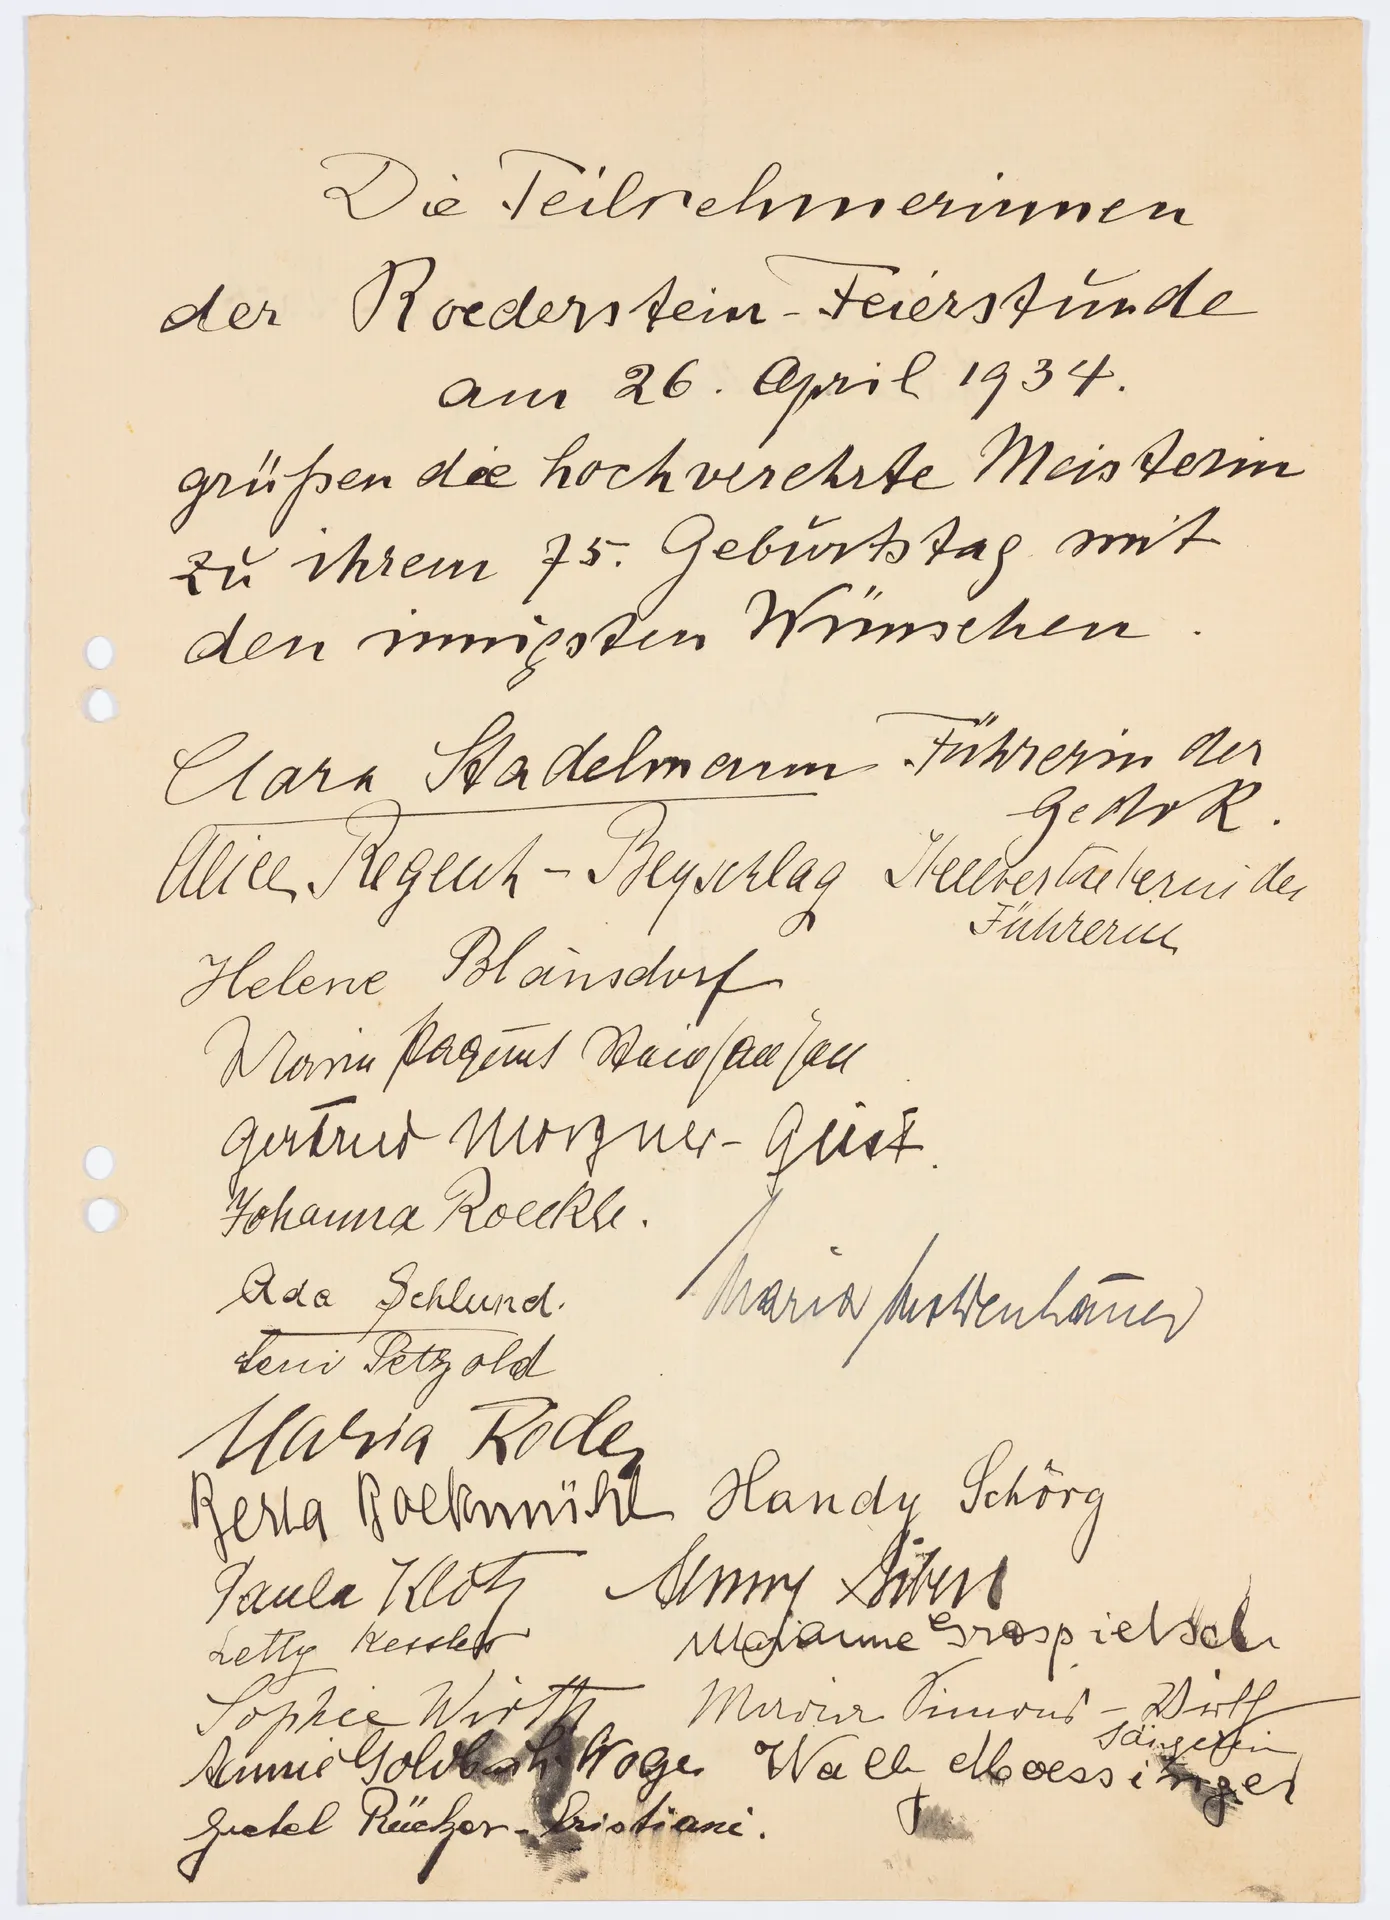 Die Teilnehmerinnen
der Roederstein-Feierstunde
am 26. April 1934.
grüßen die hochverehrte Meisterin
zu ihrem 75. Geburtstag mit
den innigsten Wünschen.
Clara Stadelmann Führerin der
Gedok.
Alice Regenh-Beyschlag Stellvertreterin der
Führerin
Helene Blänsdorf
Maria
Gertrud Morgner-Geist.
Johanna Roeckle.
Ada Schlund.
Maria Moldenhauer
Leni Petzold
Maria Rode
Berta Bockmühl Handy Schörg
Paula Klotz Jenny
Letty Kessler Marianne Grospietsch
Sophie Wirth Maria Simons-Wirth
Sängerin
Annie Woge Moessinger
Gretel Rücker-Cristiani.